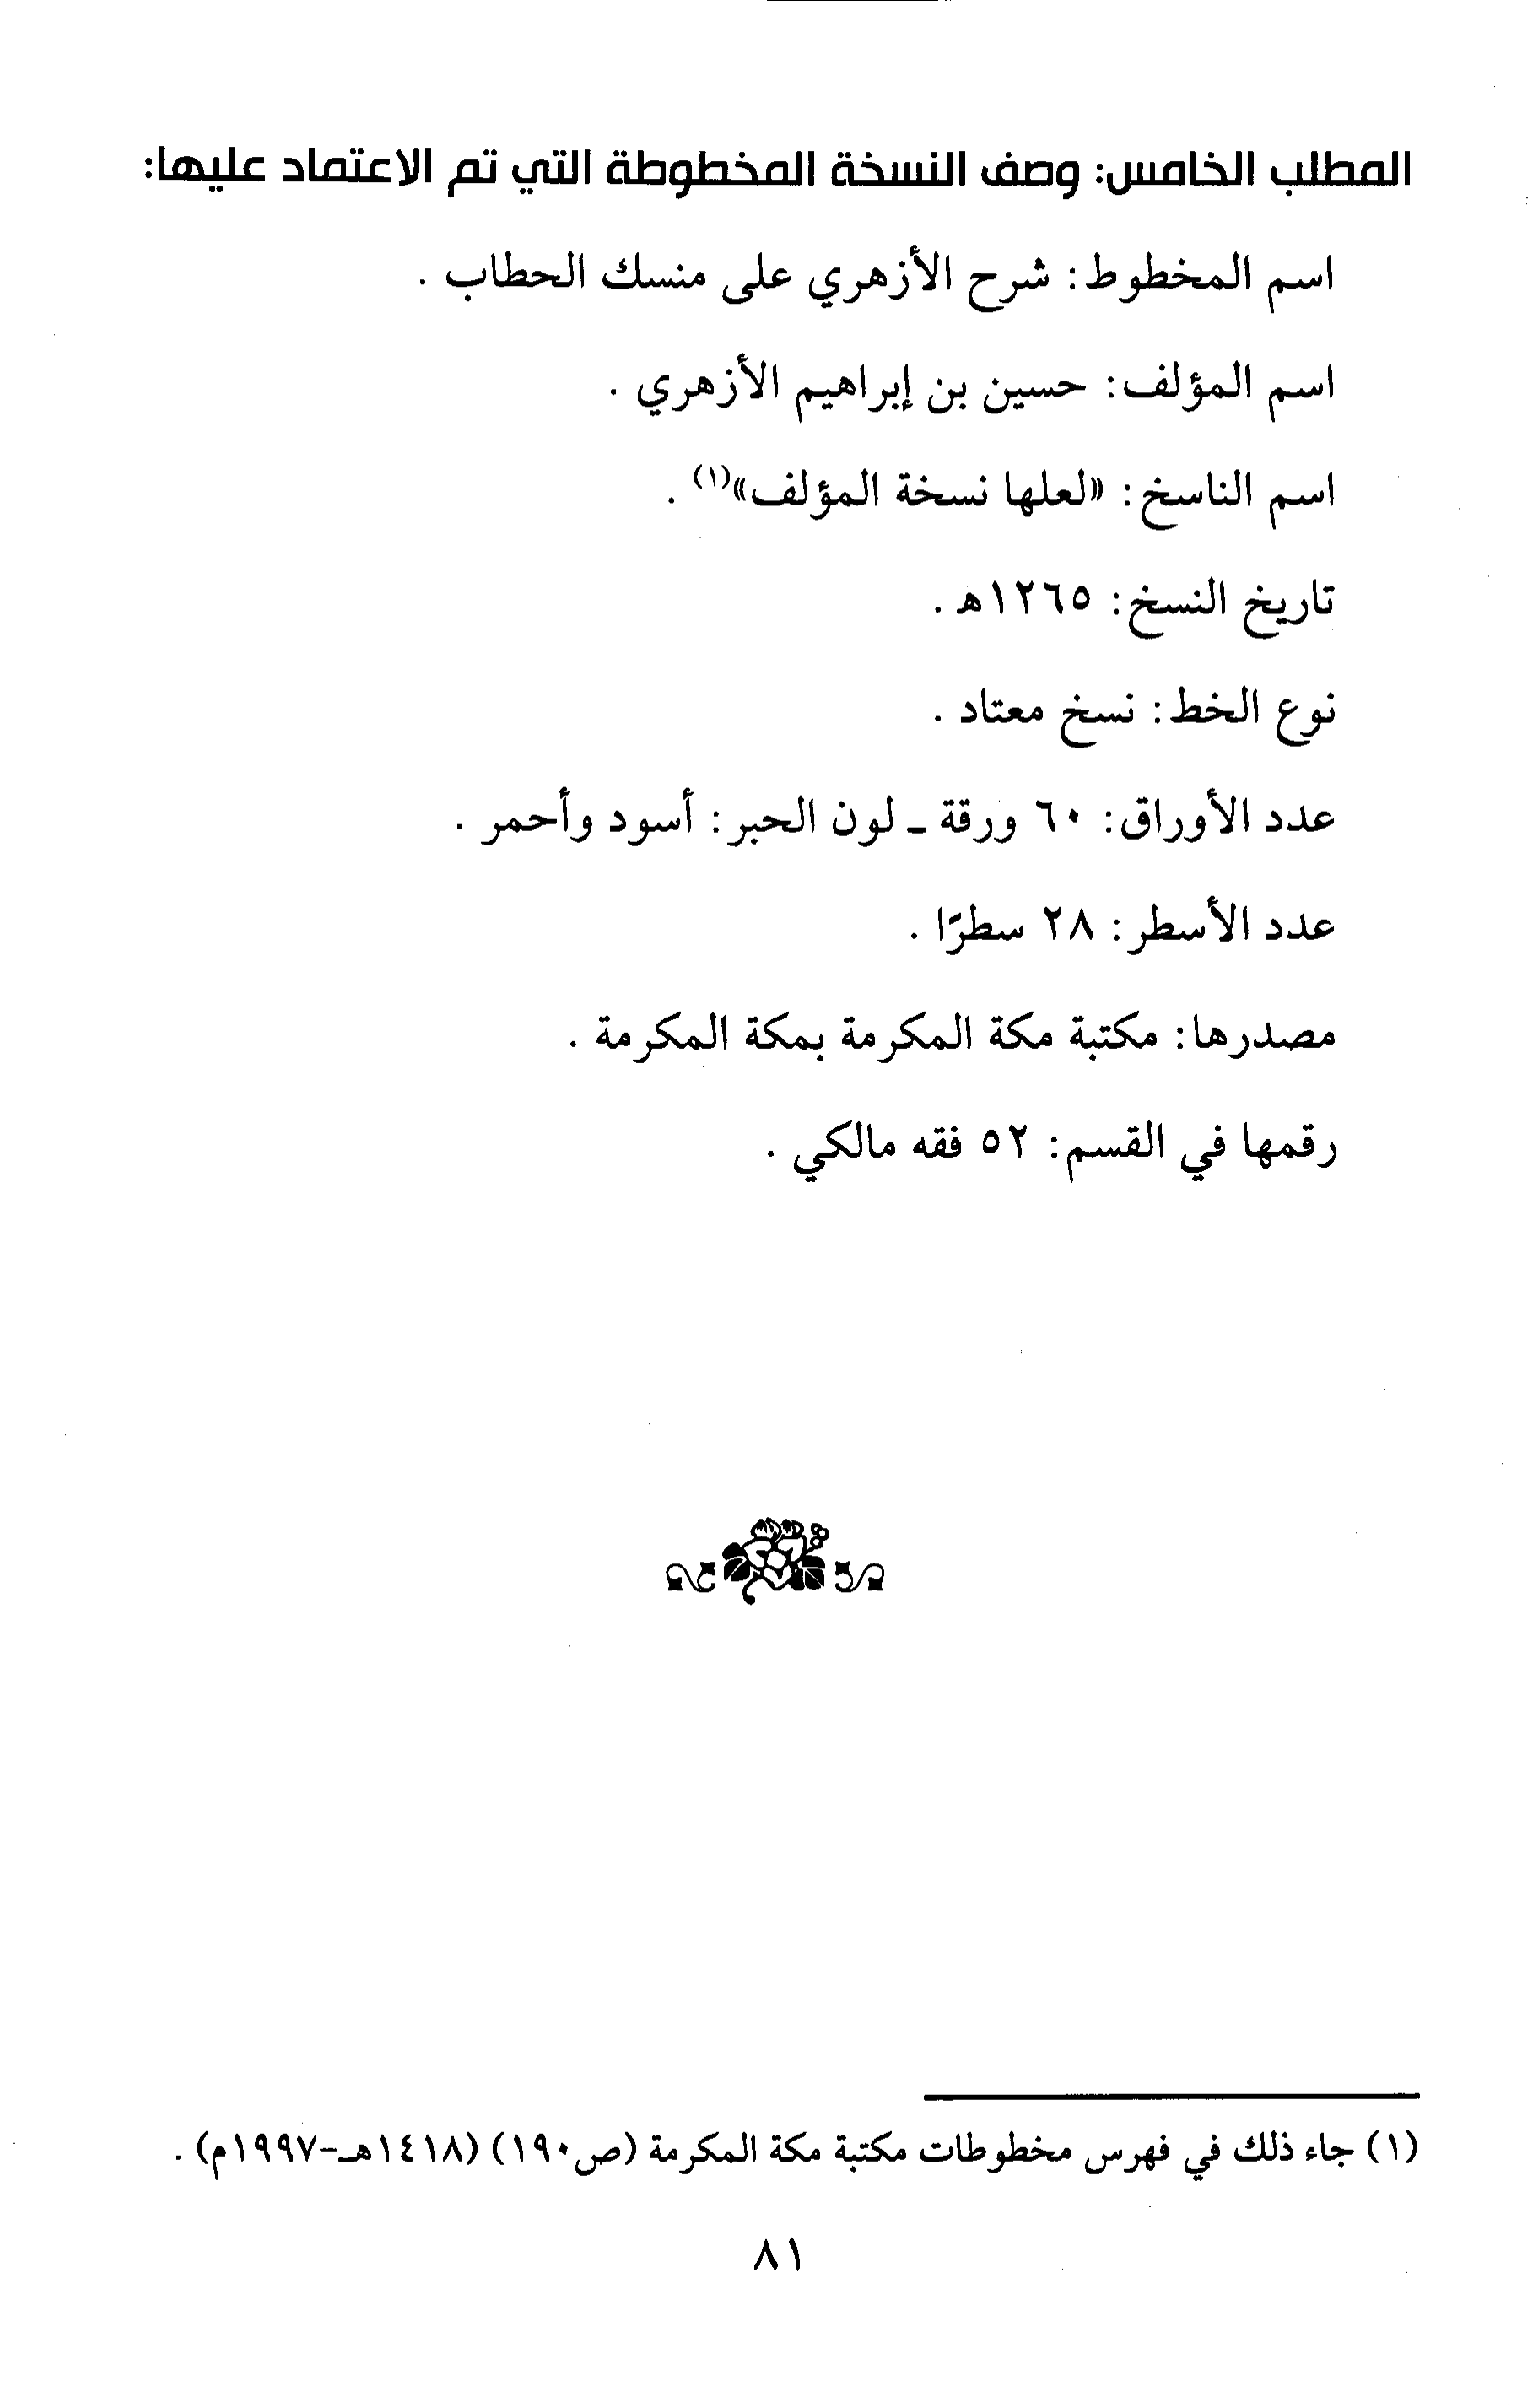 المطلب الخامس: وصف النسخة المخطوطة التي تم الاعتماد عليها:
اسم المخطوط: شرح الأزهري على منسك الحطاب .
اسم المؤلف: حسين بن إبراهيم الأزهري .
اسم الناسخ: «لعلها نسخة المؤلف»(١) .
تاريخ النسخ: ١٢٦٥هـ .
نوع الخط: نسخ معتاد .
عدد الأوراق: ٦٠ ورقة ـ لون الحبر: أسود وأحمر .
عدد الأسطر: ٢٨ سطرًا .
مصدرها: مكتبة مكة المكرمة بمكة المكرمة .
رقمها في القسم: ٥٢ فقه مالكي .
(١) جاء ذلك في فهرس مخطوطات مكتبة مكة المكرمة (ص١٩٠) (١٤١٨هـ-١٩٩٧م) .
٨١